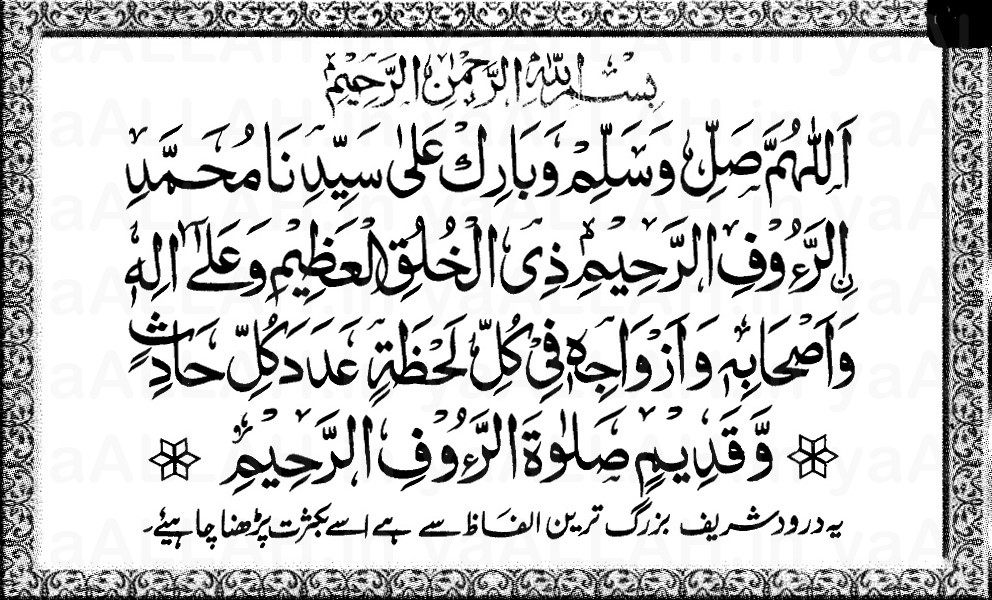 بِسْمِ اللّٰهِ الرَّحْمٰنِ الرَّحِيْمِ
اَللّٰهُمَّ صَلِّ وَسَلِّمْ وَبَارِكْ عَلٰى سَيِّدِنَا مُحَمَّدِ
نِ الرَّءُوْفِ الرَّحِيْمِ ذِى الْخُلُقِ الْعَظِيْمِ وَعَلٰٓى اٰلِهٖ
وَاَصْحَابِهٖ وَاَزْوَاجِهٖ فِيْ كُلِّ لَحْظَةٍ عَدَدَ كُلِّ حَادِثٍ
وَّقَدِيْمٍ صَلٰوةَ الرَّءُوْفِ الرَّحِيْمِ
یہ درود شریف بزرگ ترین الفاظ سے ہے اسے بکثرت پڑھنا چاہیئے۔
yaALLAH.in yaALLAH.in yaALLAH.in